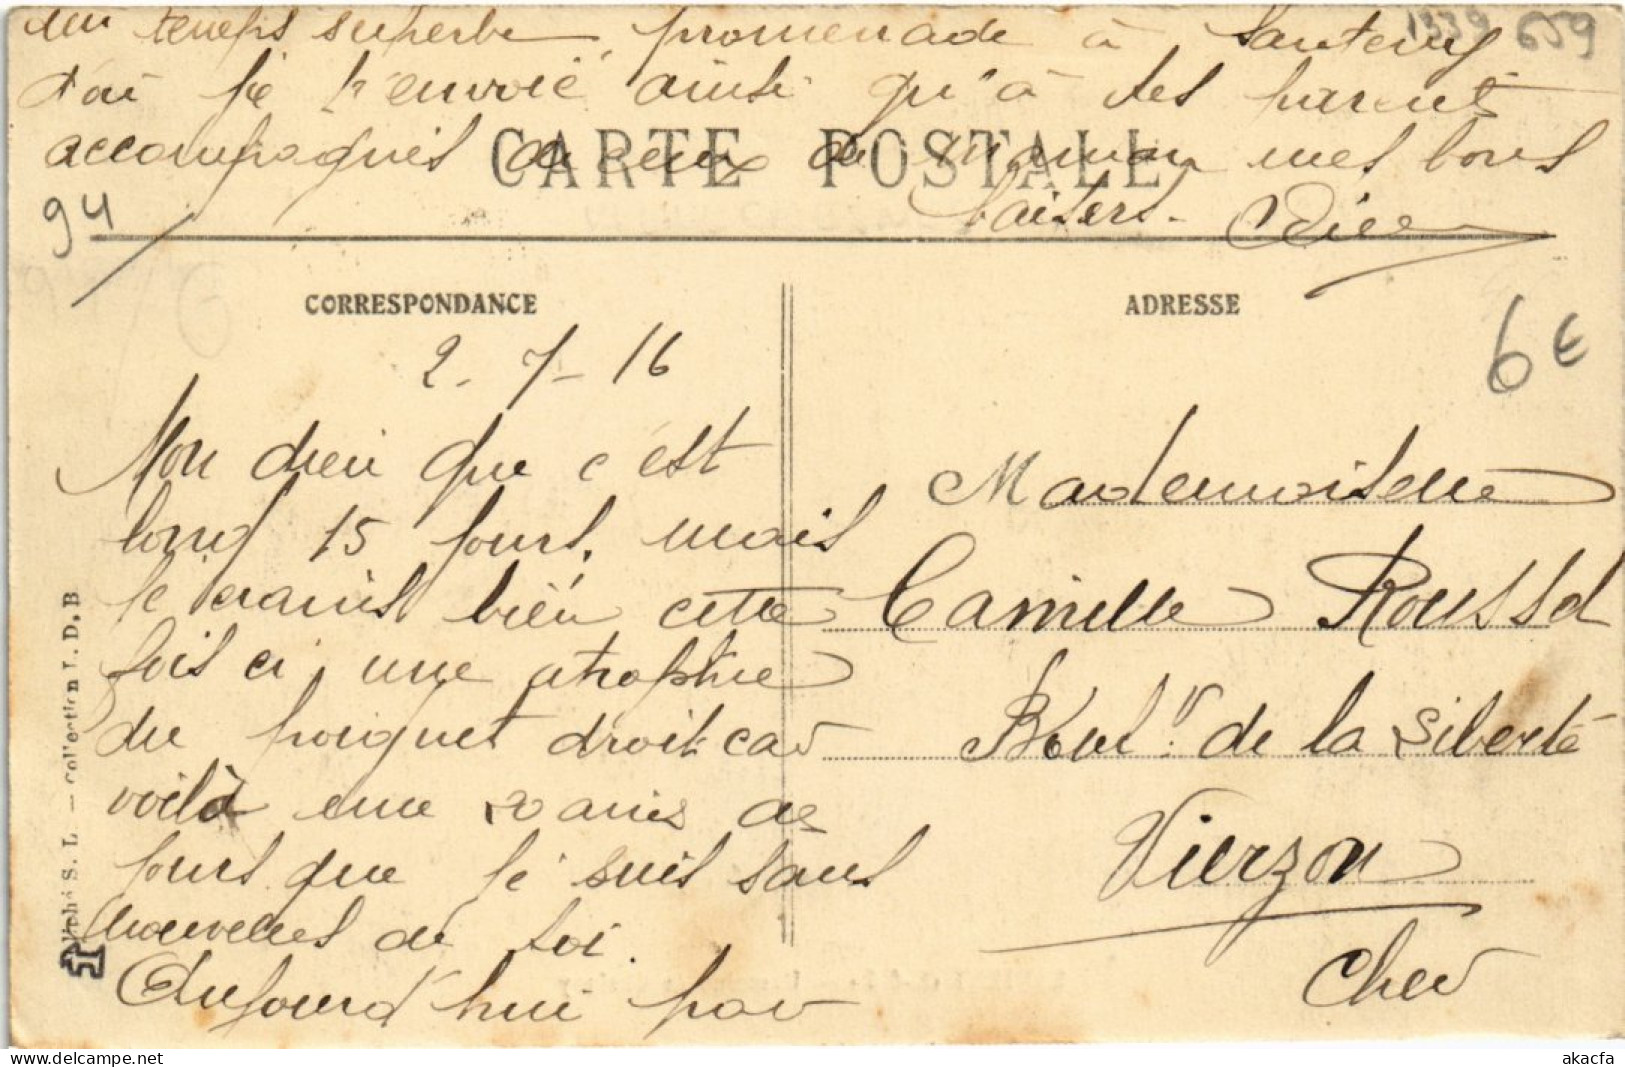 un temps superbe, promenade à Santeny
d'où je t'envoie ainsi qu'à tes parents
accompagnés de ceux de maman mes bons
baisers.
CARTE POSTALE
1339 659
94
CORRESPONDANCE
ADRESSE
6€
2-7-16
Mon dieu que c'est
long 15 jours, mais
je crains bien cette
fois ci, une atrophie
du poignet droit car
voilà une 20aines de
jours que je suis sans
nouvelles de toi.
Aujourd'hui par
Mademoiselle
Camille Roussel
Boul.d de la Liberté
Vierzon
Cher
Cliché S. L. — Collection L. D. B
akacfa